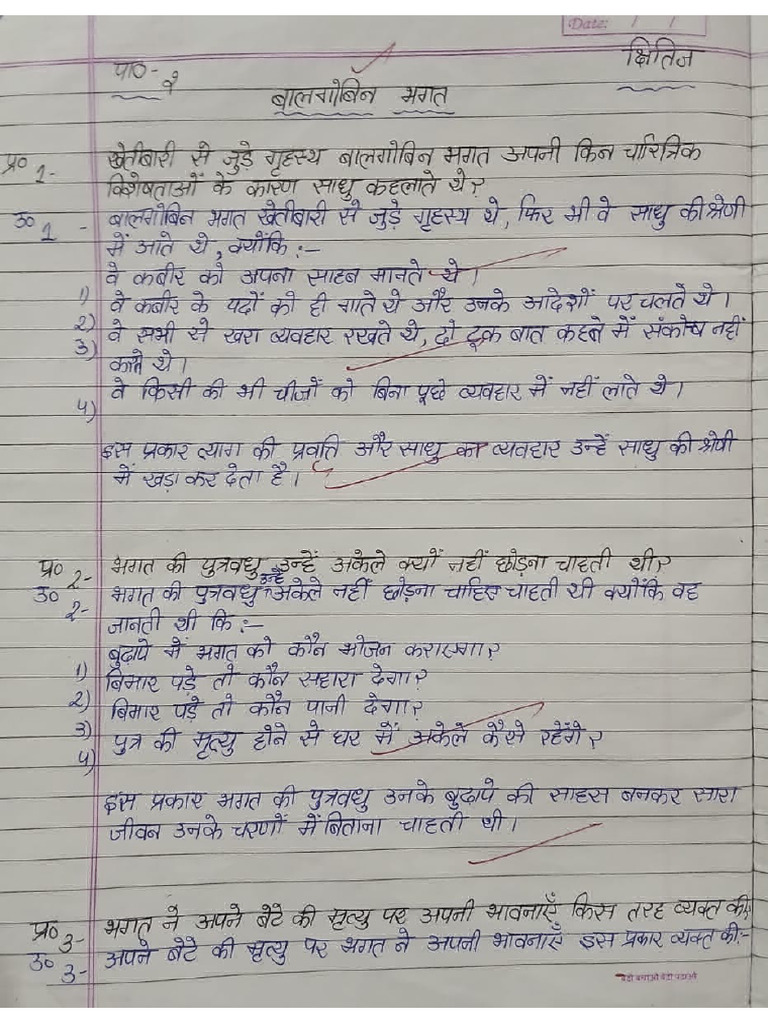 Date: / /
पाठ - २
क्षितिज
बालगोबिन भगत
प्र० 1- खेतीबारी से जुड़े गृहस्थ बालगोबिन भगत अपनी किन चारित्रिक
विशेषताओं के कारण साधु कहलाते थे?
उ० 1 - बालगोबिन भगत खेतीबारी से जुड़े गृहस्थ थे, फिर भी वे साधु की श्रेणी
में आते थे, क्योंकि :-
1) वे कबीर को अपना साहब मानते थे।
2) वे कबीर के पदों को ही गाते थे और उनके आदेशों पर चलते थे।
3) वे सभी से खरा व्यवहार रखते थे, दो टूक बात कहने में संकोच नहीं
करते थे।
4) वे किसी की भी चीजों को बिना पूछे व्यवहार में नहीं लाते थे।
इस प्रकार त्याग की प्रवति और साधु का व्यवहार उन्हें साधु की श्रेणी
में खड़ा कर देता है।
प्र० 2- भगत की पुत्रवधु उन्हें अकेले क्यों नहीं छोड़ना चाहती थी?
उ० 2- भगत की पुत्रवधु उन्हें अकेले नहीं छोड़ना चाहती थी क्योंकि वह
जानती थी कि :-
1) बुढ़ापे में भगत को कौन भोजन कराएगा?
2) बिमार पड़े तो कौन सहारा देगा?
3) बिमार पड़े तो कौन पानी देगा?
4) पुत्र की मृत्यु होने से घर में अकेले कैसे रहेंगे?
इस प्रकार भगत की पुत्रवधु उनके बुढ़ापे की साहस बनकर सारा
जीवन उनके चरणों में बिताना चाहती थी।
प्र० 3- भगत ने अपने बेटे की मृत्यु पर अपनी भावनाएँ किस तरह व्यक्त की?
उ० 3- अपने बेटे की मृत्यु पर भगत ने अपनी भावनाएँ इस प्रकार व्यक्त की:-
बेटी बचाओ बेटी पढ़ाओ